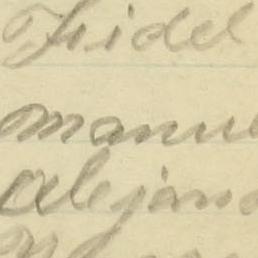 Fidel
Manuel
Alejand